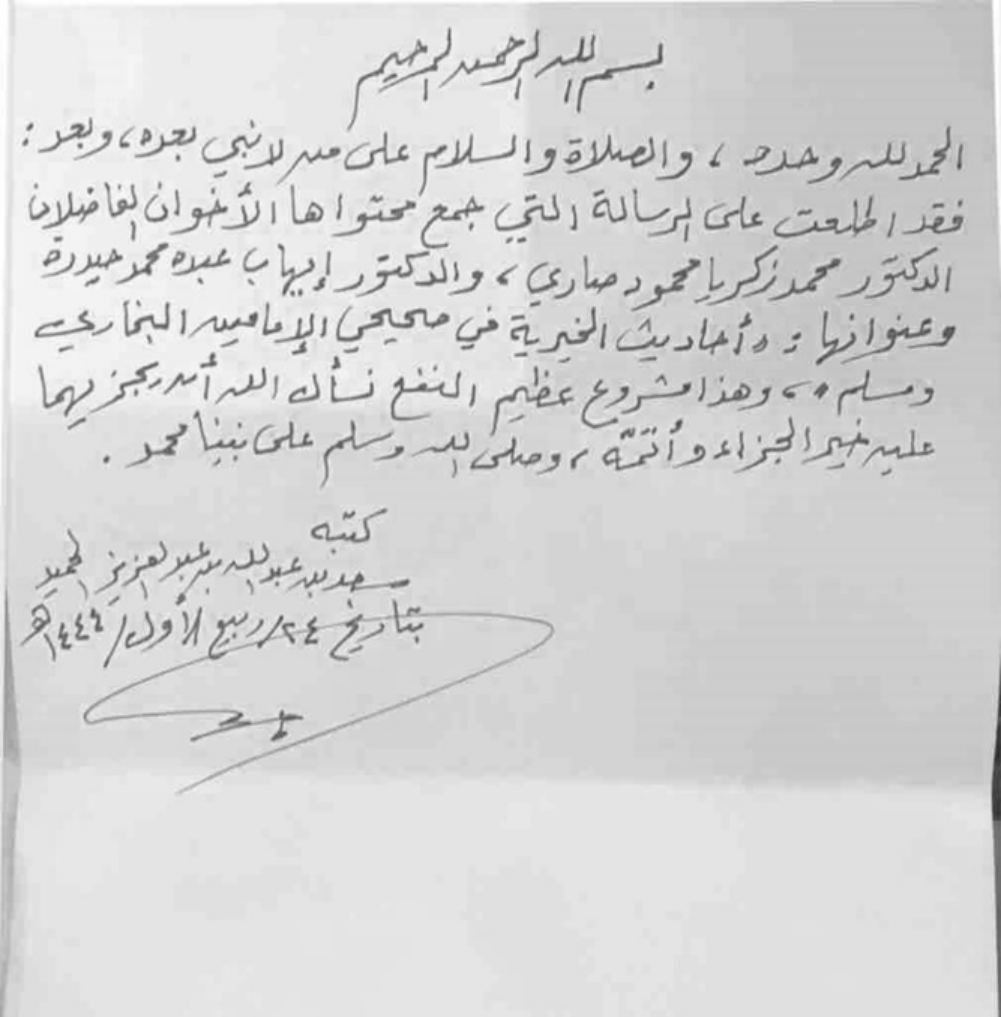 بسم الله الرحمن الرحيم
الحمد لله وحده، والصلاة والسلام على من لا نبي بعده، وبعد:
فقد اطلعت على الرسالة التي جمع محتواها الأخوان الفاضلان
الدكتور محمد زكريا محمود صاري، والدكتور إيهاب عبده محمد حيدرة
وعنوانها: «أحاديث الخيرية في صحيحي الإمامين البخاري
ومسلم»، وهذا مشروع عظيم النفع نسأل الله أن يجزيهما
عليه خير الجزاء وأتمّه، وصلى الله وسلم على نبينا محمد.
كتبه
سعد بن عبدالله بن عبدالعزيز الحميد
بتاريخ ٢٤/ربيع الأول/١٤٤٤هـ